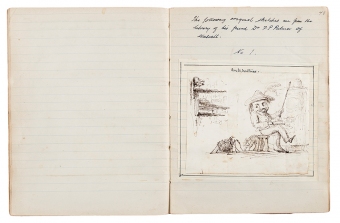 The following original sketches are from the
library of his friend Dr F P Palmer of
No 1.